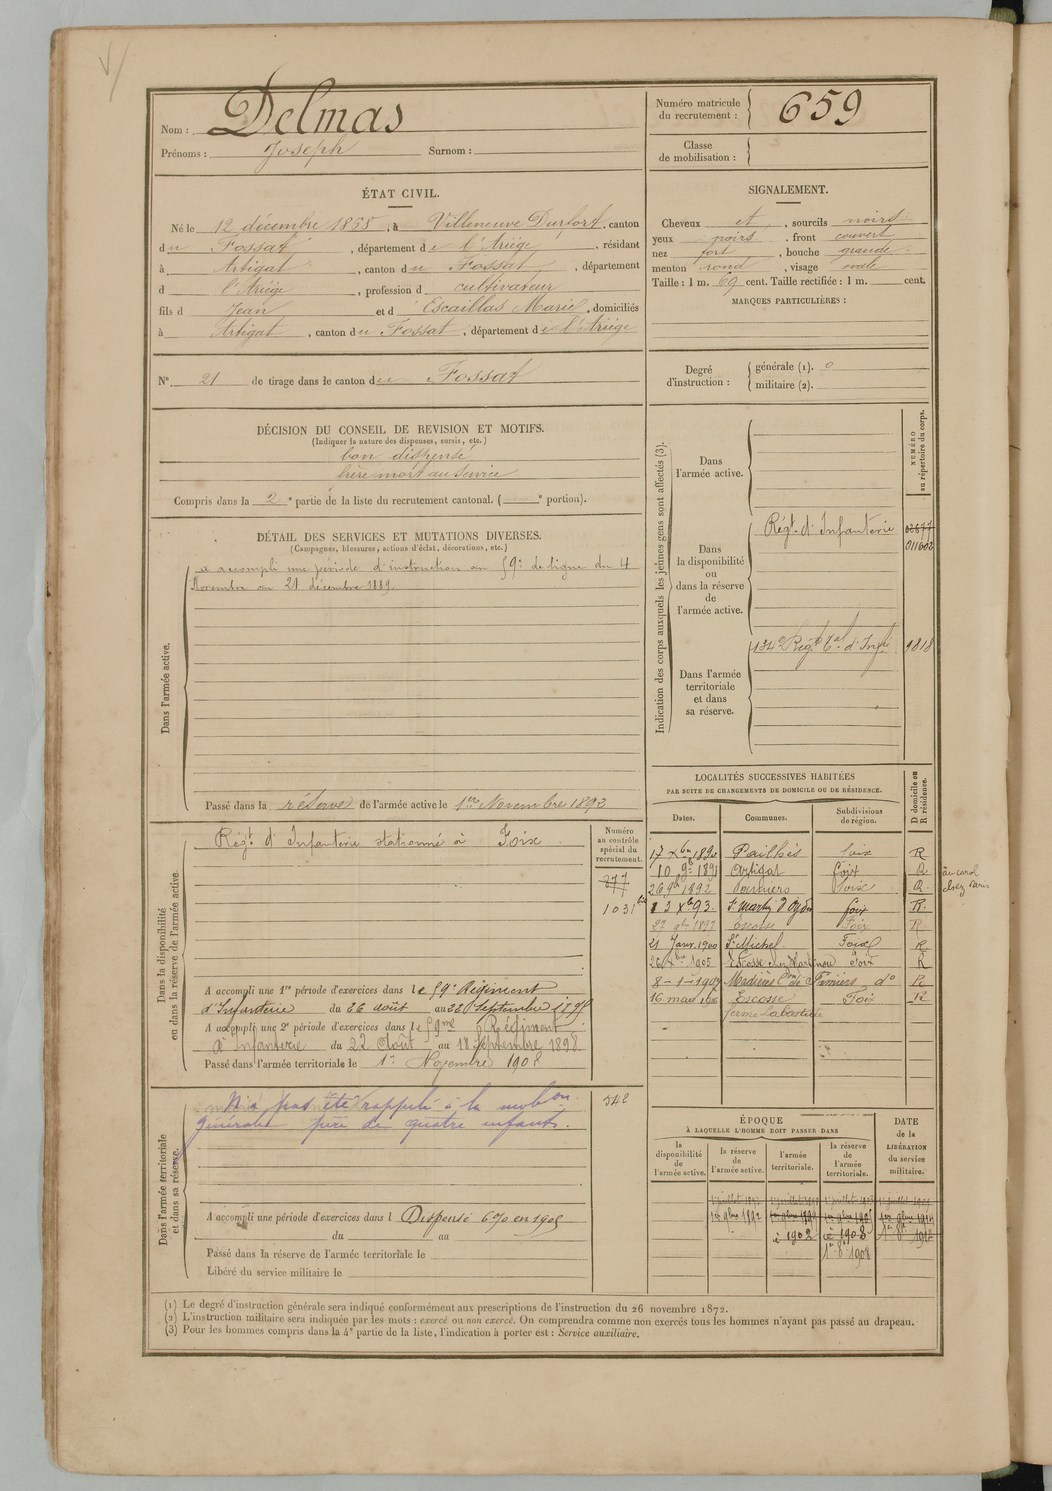 Nom : Delmas
Prénoms : Joseph Surnom :
Numéro matricule du recrutement : 659
Classe de mobilisation :
ÉTAT CIVIL.
Né le 12 décembre 1868, à Villeneuve Durfort, canton
du Fossat, département de l'Ariège, résidant
à Artigat, canton du Fossat, département
d l'Ariège, profession d cultivateur
fils d Jean et d Escaillas Marie, domiciliés
à Artigat, canton du Fossat, département de l'Ariège
N° 21 de tirage dans le canton du Fossat
SIGNALEMENT.
Cheveux et, sourcils noirs
yeux noirs, front couvert
nez fort, bouche grande
menton rond, visage ovale
Taille : 1 m. 69 cent. Taille rectifiée : 1 m. cent.
MARQUES PARTICULIÈRES :
Degré d'instruction :
générale (1). 0
militaire (2).
DÉCISION DU CONSEIL DE REVISION ET MOTIFS.
(Indiquer la nature des dispenses, sursis, etc.)
bon dispensé
frère mort au service
Compris dans la 2e partie de la liste du recrutement cantonal. ( e portion).
DÉTAIL DES SERVICES ET MUTATIONS DIVERSES.
(Campagnes, blessures, actions d'éclat, décorations, etc.)
Dans l'armée active.
a accompli une période d'instruction au 59e de ligne du 4
Novembre au 21 décembre 1889.
Passé dans la réserve de l'armée active le 1er Novembre 1892
Indication des corps auxquels les jeunes gens sont affectés (3).
NUMÉRO au répertoire du corps.
Dans l'armée active.
Dans la disponibilité ou dans la réserve de l'armée active.
Régt d'Infanterie
02677
011602
Dans l'armée territoriale et dans sa réserve.
134e Régt tal d'Infie 1818
LOCALITÉS SUCCESSIVES HABITÉES
PAR SUITE DE CHANGEMENTS DE DOMICILE OU DE RÉSIDENCE.
Dates. Communes. Subdivisions de région. D domicile ou R résidence.
17 Xbre 1890 Pailhès Foix R
10 9e 1891 Artigat Foix
26 9e 1892 Pamiers Foix
3 Xbe 93 St Martin d'Oydes Foix R.
27 1897 Escosse Foix R
21 Janv. 1900 St Michel Foix R
26 1905 Escosse chez Foix R
8-1-1907 Madière Pamiers do R
16 mars Escosse Foix R
ferme Labastide
Dans la disponibilité ou dans la réserve de l'armée active.
Régt d'Infanterie stationné à Foix
Numéro au contrôle spécial du recrutement.
277
1031 bis
A accompli une 1re période d'exercices dans le 59e Régiment
d'Infanterie du 26 août au 22 Septembre 1895
A accompli une 2e période d'exercices dans le 59me Régiment
d'Infanterie du 22 Août au 18 Septembre 1898
Passé dans l'armée territoriale le 1er Novembre 1908
Dans l'armée territoriale et dans sa réserve.
N'a pas été rappelé à la mobon
générale père de quatre enfants.
A accompli une période d'exercices dans l Dispensé 6% en 1905
du au
Passé dans la réserve de l'armée territoriale le
Libéré du service militaire le
ÉPOQUE
À LAQUELLE L'HOMME DOIT PASSER DANS
la disponibilité de l'armée active.
la réserve de l'armée active.
l'armée territoriale.
la réserve de l'armée territoriale.
DATE de la LIBÉRATION du service militaire.
1er 9bre 1892
1902
1908
(1) Le degré d'instruction générale sera indiqué conformément aux prescriptions de l'instruction du 26 novembre 1872.
(2) L'instruction militaire sera indiquée par les mots : exercé ou non exercé. On comprendra comme non exercés tous les hommes n'ayant pas passé au drapeau.
(3) Pour les hommes compris dans la 4e partie de la liste, l'indication à porter est : Service auxiliaire.